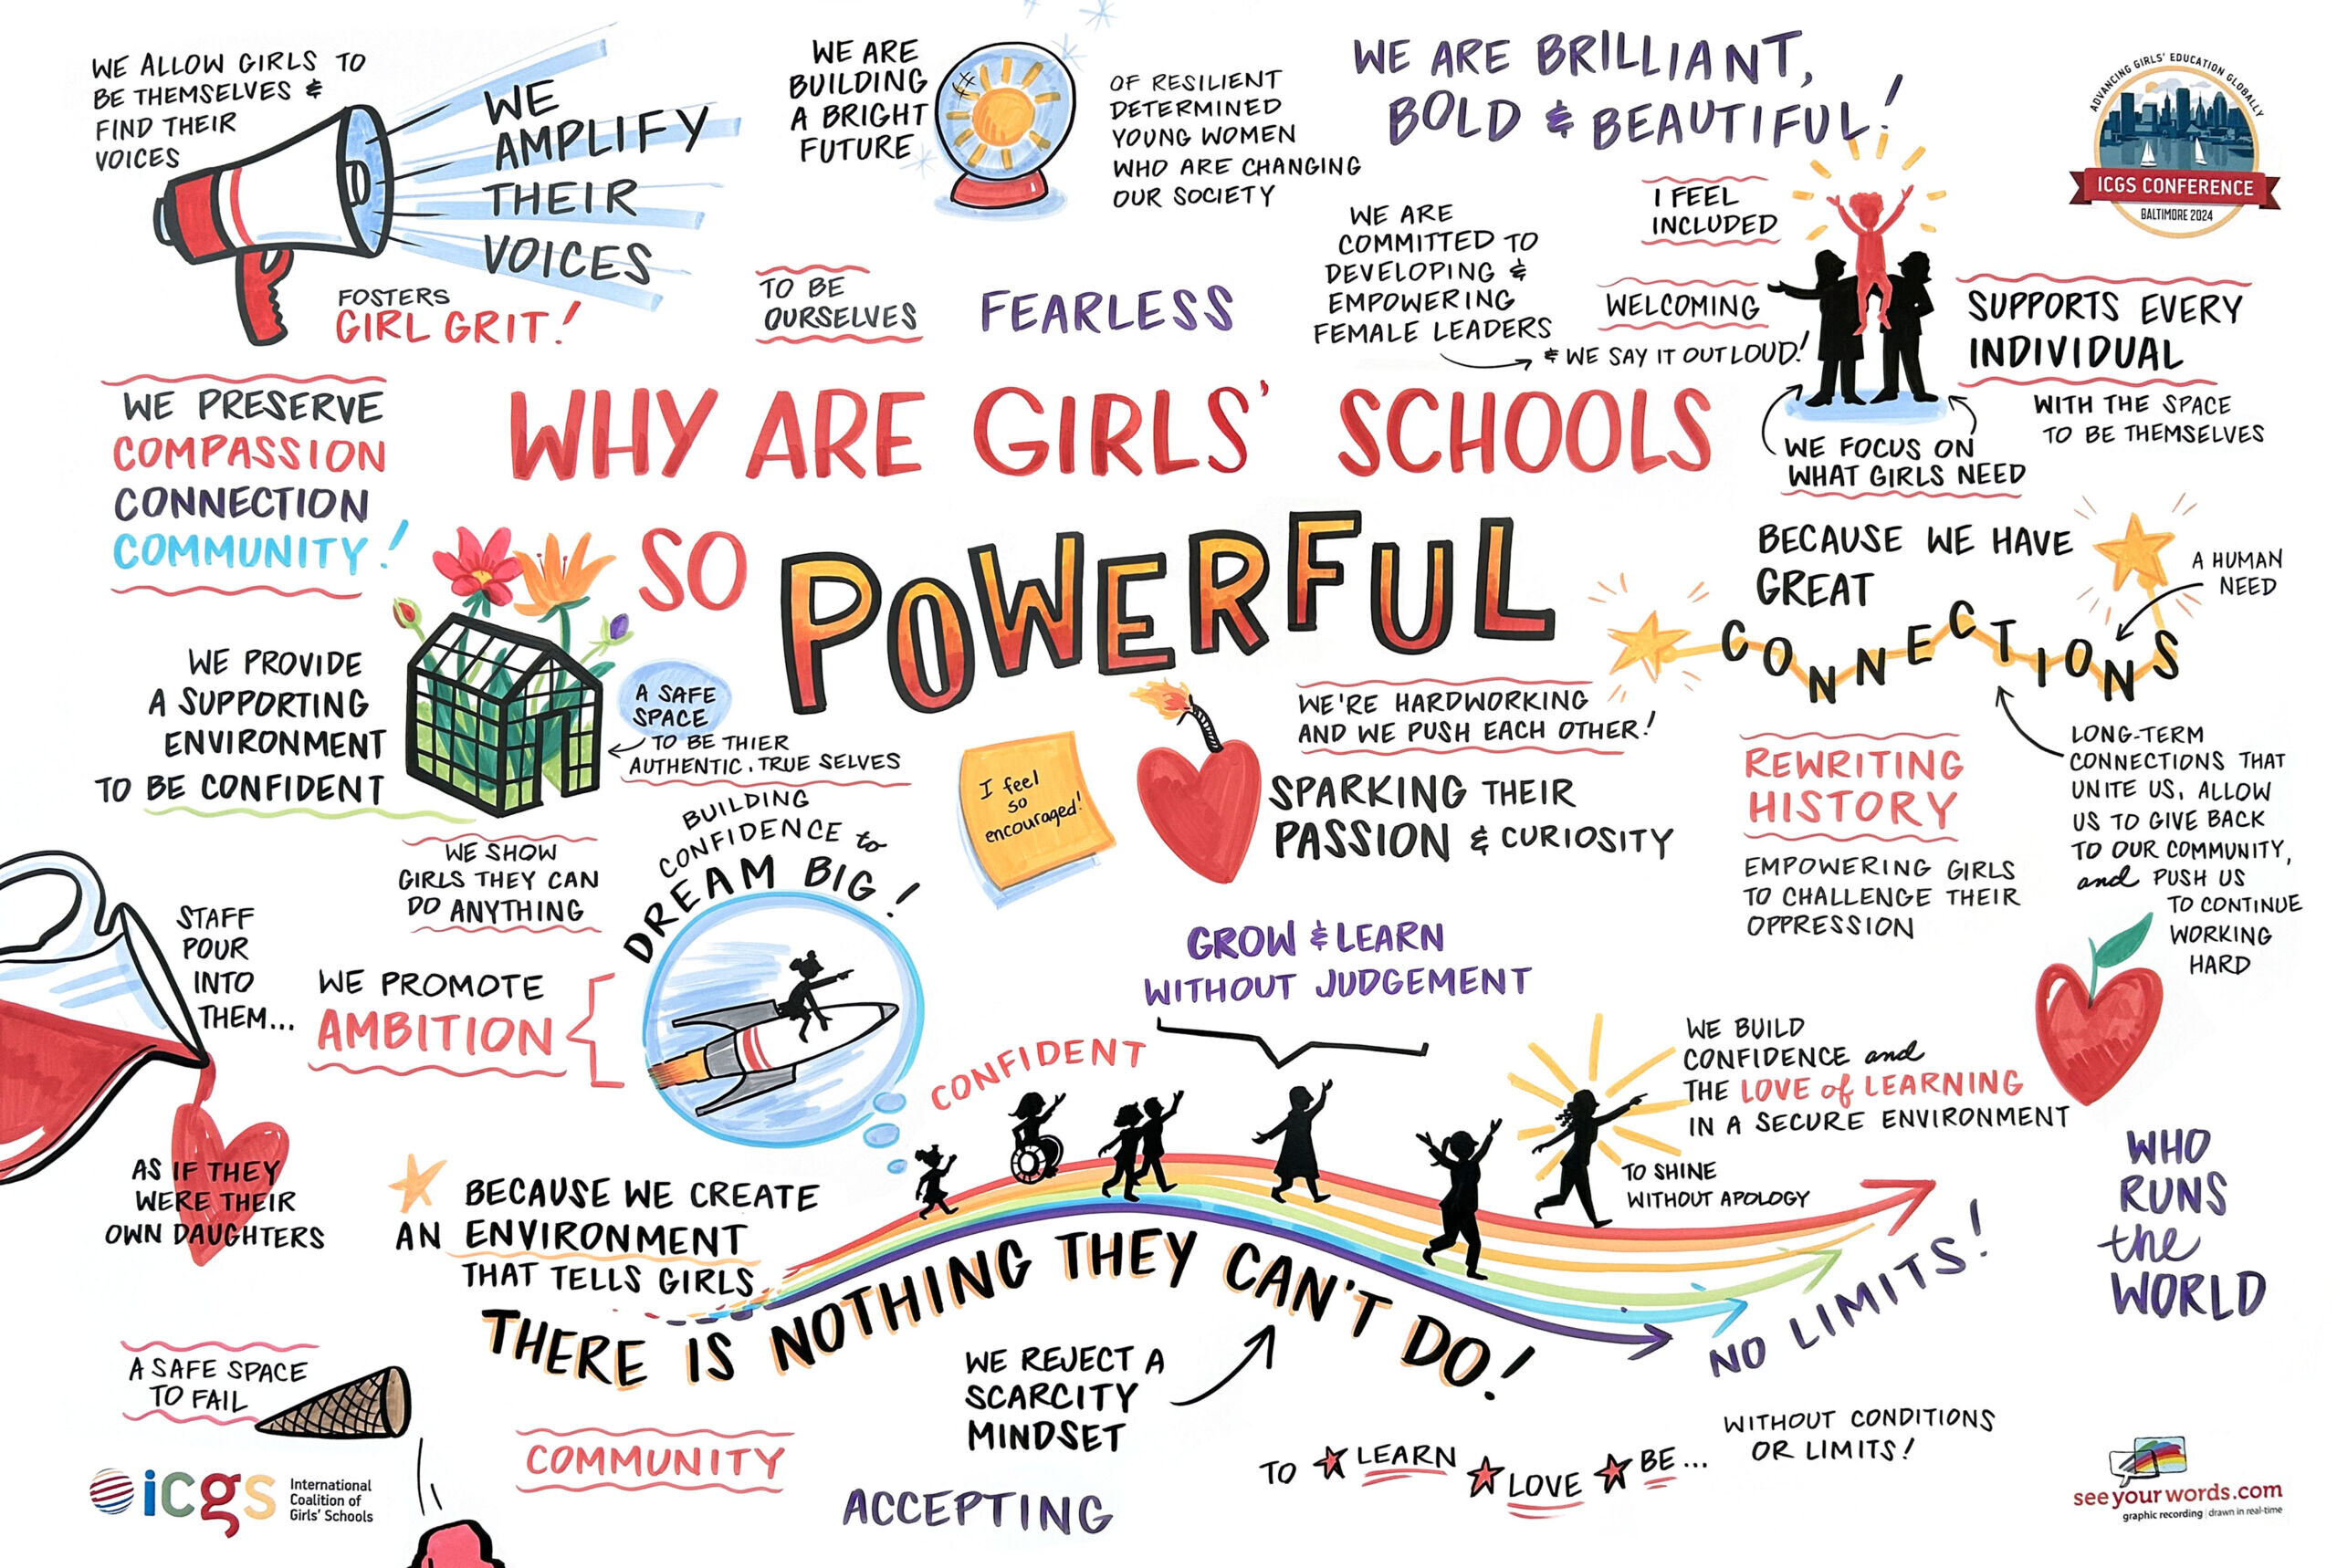 WE ALLOW GIRLS TO
BE THEMSELVES &
FIND THEIR
VOICES
WE
AMPLIFY
THEIR
VOICES
FOSTERS
GIRL GRIT!
WE ARE
BUILDING
A BRIGHT
FUTURE
OF RESILIENT
DETERMINED
YOUNG WOMEN
WHO ARE CHANGING
OUR SOCIETY
TO BE
OURSELVES
FEARLESS
WE ARE BRILLIANT,
BOLD & BEAUTIFUL!
WE ARE
COMMITTED TO
DEVELOPING &
EMPOWERING
FEMALE LEADERS
& WE SAY IT OUT LOUD!
I FEEL
INCLUDED
WELCOMING
SUPPORTS EVERY
INDIVIDUAL
WITH THE SPACE
TO BE THEMSELVES
WE FOCUS ON
WHAT GIRLS NEED
ADVANCING GIRLS' EDUCATION GLOBALLY
ICGS CONFERENCE
BALTIMORE 2024
WHY ARE GIRLS' SCHOOLS
SO POWERFUL
WE PRESERVE
COMPASSION
CONNECTION
COMMUNITY!
WE PROVIDE
A SUPPORTING
ENVIRONMENT
TO BE CONFIDENT
A SAFE
SPACE
TO BE THIER
AUTHENTIC, TRUE SELVES
BECAUSE WE HAVE
GREAT
CONNECTIONS
A HUMAN
NEED
LONG-TERM
CONNECTIONS THAT
UNITE US, ALLOW
US TO GIVE BACK
TO OUR COMMUNITY,
and PUSH US
TO CONTINUE
WORKING
HARD
WE'RE HARDWORKING
AND WE PUSH EACH OTHER!
I feel
so
encouraged!
SPARKING THEIR
PASSION & CURIOSITY
REWRITING
HISTORY
EMPOWERING GIRLS
TO CHALLENGE THEIR
OPPRESSION
WE SHOW
GIRLS THEY CAN
DO ANYTHING
BUILDING
CONFIDENCE to
DREAM BIG!
STAFF
POUR
INTO
THEM...
AS IF THEY
WERE THEIR
OWN DAUGHTERS
WE PROMOTE
AMBITION
GROW & LEARN
WITHOUT JUDGEMENT
CONFIDENT
WE BUILD
CONFIDENCE and
THE LOVE of LEARNING
IN A SECURE ENVIRONMENT
TO SHINE
WITHOUT APOLOGY
WHO
RUNS
the
WORLD
BECAUSE WE CREATE
AN ENVIRONMENT
THAT TELLS GIRLS
THERE IS NOTHING THEY CAN'T DO!
NO LIMITS!
A SAFE SPACE
TO FAIL
WE REJECT A
SCARCITY
MINDSET
COMMUNITY
ACCEPTING
TO LEARN LOVE BE...
WITHOUT CONDITIONS
OR LIMITS!
icgs
International
Coalition of
Girls' Schools
seeyourwords.com
graphic recording | drawn in real-time